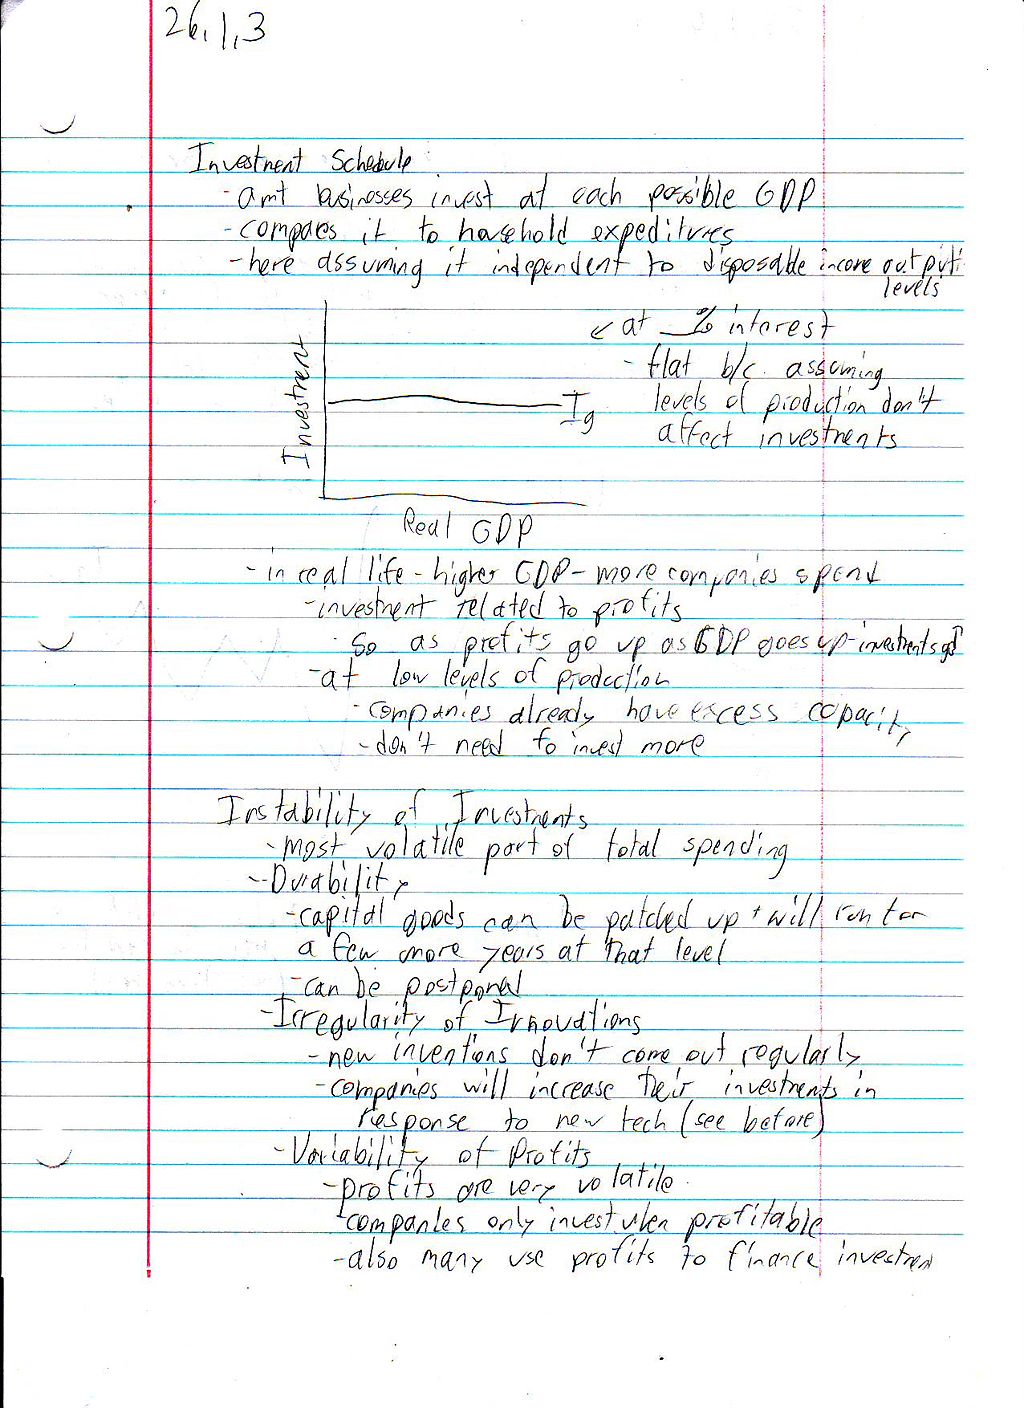 26.1.3
Investment Schedule
- amt businesses invest at each possible GDP
- compares it to household expeditures
- here assuming it independent to disposable income output
levels
↙ at __% interest
- flat b/c. assuming
levels of production don't
affect investments
Investment
Ig
Real GDP
- in real life - higher GDP - more companies spent
- investment related to profits
- So as profits go up as GDP goes up - investments go↑
- at low levels of production
- companies already have excess capacity
- don't need to invest more
Instability of Investments
- most volatile part of total spending
- Durability
- capital goods can be patched up + will run for
a few more years at that level
- can be postponed
- Irregularity of Innovations
- new inventions don't come out regularly
- companies will increase their investments in
response to new tech (see before)
- Variability of Profits
- profits are very volatile.
- companies only invest when profitable
- also many use profits to finance investment